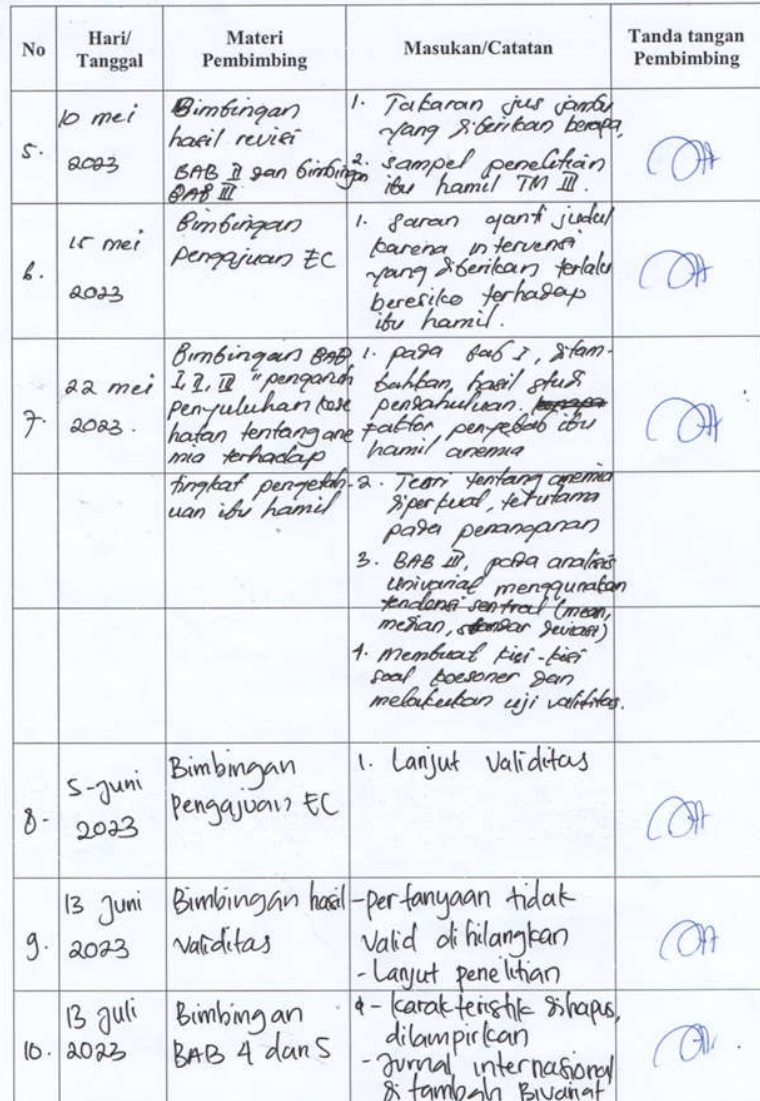 No
Hari/
Tanggal
Materi
Pembimbing
Masukan/Catatan
Tanda tangan
Pembimbing
5.
10 mei
2023
Bimbingan
hasil revisi
BAB II dan bimbingan
BAB III
1. Takaran jus jambu
yang diberikan berapa
2. Sampel penelitian
ibu hamil TM III.
6.
15 mei
2023
Bimbingan
Pengajuan EC
1. Saran ganti judul
karena intervensi
yang diberikan terlalu
beresiko terhadap
ibu hamil.
7.
22 mei
2023.
Bimbingan BAB
I, II, III "pengaruh
penyuluhan kese
hatan tentang ane
mia terhadap
tingkat pengetah-
uan ibu hamil
1. pada bab I, ditam-
bahkan, hasil studi
pendahuluan.
faktor penyebab ibu
hamil anemia
2. Teori tentang anemia
diperkuat, tetutama
pada penanganan
3. BAB III, pada analisis
univariat menggunakan
tendensi sentral (mean,
median, standar deviasi)
4. membuat kisi-kisi
soal koesoner dan
melakukan uji validitas.
8.
5-juni
2023
Bimbingan
Pengajuan EC
1. Lanjut Validitas
9.
13 Juni
2023
Bimbingan hasil
Validitas
-pertanyaan tidak
Valid di hilangkan
- Lanjut penelitian
10.
13 Juli
2023
Bimbingan
BAB 4 dan 5
- karakteristik dihapus,
dilampirkan
- Jurnal internasional
di tambah Bivariat